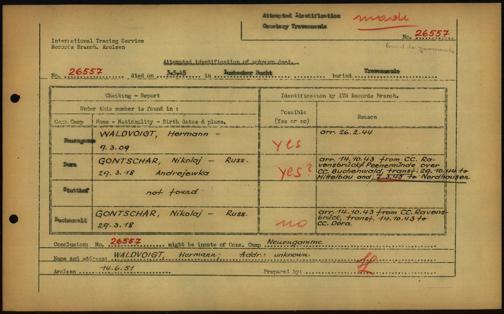 Attempted Identification
Cemetery Travemuende
made
No. 26557
International Tracing Service
Records Branch, Arolsen
Attempted identification of unknown dead.
No. 26557 died on 3.5.45 in Luebecker Bucht buried Travemuende
Checking - Report
Identification by ITS Records Branch.
Under this number is found in :
Possible
(Yes or no)
Reason
Conc. Camp
Name - Nationality - Birth dates & place.
Neuengamme
WALDVOIGT, Hermann -
9.3.09
yes
arr. 26.2.44
Dora
GONTSCHAR, Nikolaj - Russ.
29.3.18 Andrejewka
yes?
arr. 14.10.43 from CC. Ra-
vensbrück/Peenemünde over
CC. Buchenwald, transf. 29.10.44 to
Mittelbau and 7.3.45 to Nordhausen
Stutthof
not found
Buchenwald
GONTSCHAR, Nikolaj - Russ.
29.3.18
no
arr. 14.10.43 from CC. Ravens-
brück, transf. 14.10.43 to
CC. Dora.
Conclusion: No. 26557 might be inmate of Conc. Camp Neuengamme
Name and address: WALDVOIGT, Hermann; Addr: unknown.
Arolsen 14.6.51 Prepared by: